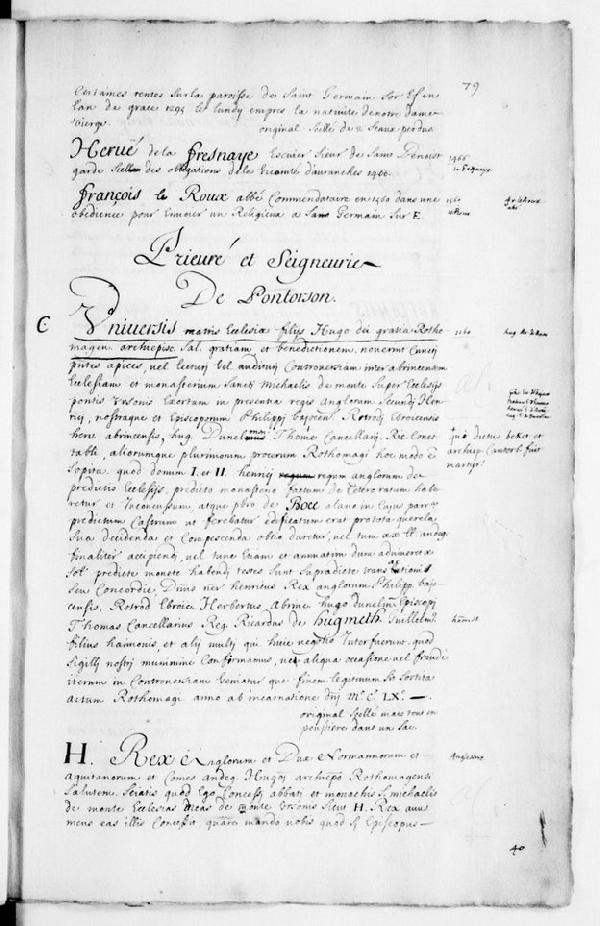 79
Certaines rentes sur la paroisse de Saint Germain sor Ef en
lan de grace 1295 le lundy empres la nativité denotre dame
vierge. original scellé de 2 seaux perdus
Herué de la Fresnaye Escuier sieur de Saint Denuost
garde scella des obligations de la vicomté d'avranches 1466.
1466
François le Roux abbé Commendataire en 1560 dans une
obedience pour Envoier un Religieux a Saint Germain sur E.
1560
Prieuré et Seigneurie
De Pontorson.
C
Universis matris Ecclesiæ filijs Hugo dei gratia Rotho
magen archiepisc. Sal. gratiam et benedictionem, noverint Cuncti
1160
apices, vel lecturi vel audituri Controversiam inter abrincensem
Ecclesiam et monasterium Sancti Michaelis de monte super Ecclesijs
pontis Ursonis Exortam in presentia regis Anglorum Secundi Hen
rici, nostraque et Episcoporum Philippi bajocens. Rotrodi Ebroicensis
herv. abrincensis, hug. Dunelmensis Thome Cancellarij, Ric. Const
table, aliorumque plurimorum procerum Rothomagi hoc modo e
sopita. quod donum I. et II. henrici regum anglorum de
predictis Ecclesijs, predicto monasterio factum de Cetero ratum habe
retur et Inconcussum, atque pbro de Boce alano in Cujus
predictum Castrum ut ferebatur edificatum erat pro tota querela
sua decidenda et Compescenda
finaliter accipiend, vel tunc Etiam et annuatim dum adviveret
sol. predicte monete habendi testes sunt supradicte transactionis
seu Concordie, Dnus ner henricus Rex anglorum Philipp. bajo
censis, Rotrod Ebroic Herbertus, Abrinc hugo dunelmen Episcopi
Thomas Cancellarius Reg. Ricardus de hugmeth Guillelmus
filius haimonis, et alij multi qui huic negotio Interfuerunt. quod
sigilli nostri munimine Confirmamus, ne aliqua occasione vel fraude
iterum in Controversiam veniat que finem legitimum sit sortita
actum Rothomagi anno ab incarnatione dnj M.° C. LX.°
original scellé mais tout en
poussiere dans un sac.
H. Rex Anglorum et Dux Normannorum et
Angleterre
aquitanorum et Comes andeg. Hugoni archiepo Rothomagensi
Salutem. Sciatis quod Ego Concessi abbati et monachis S. michaelis
de monte Ecclesias meas de monte Ursonis sicut H. Rex avus
meus eas illis Concessit, quare mando vobis quod si Episcopus
40